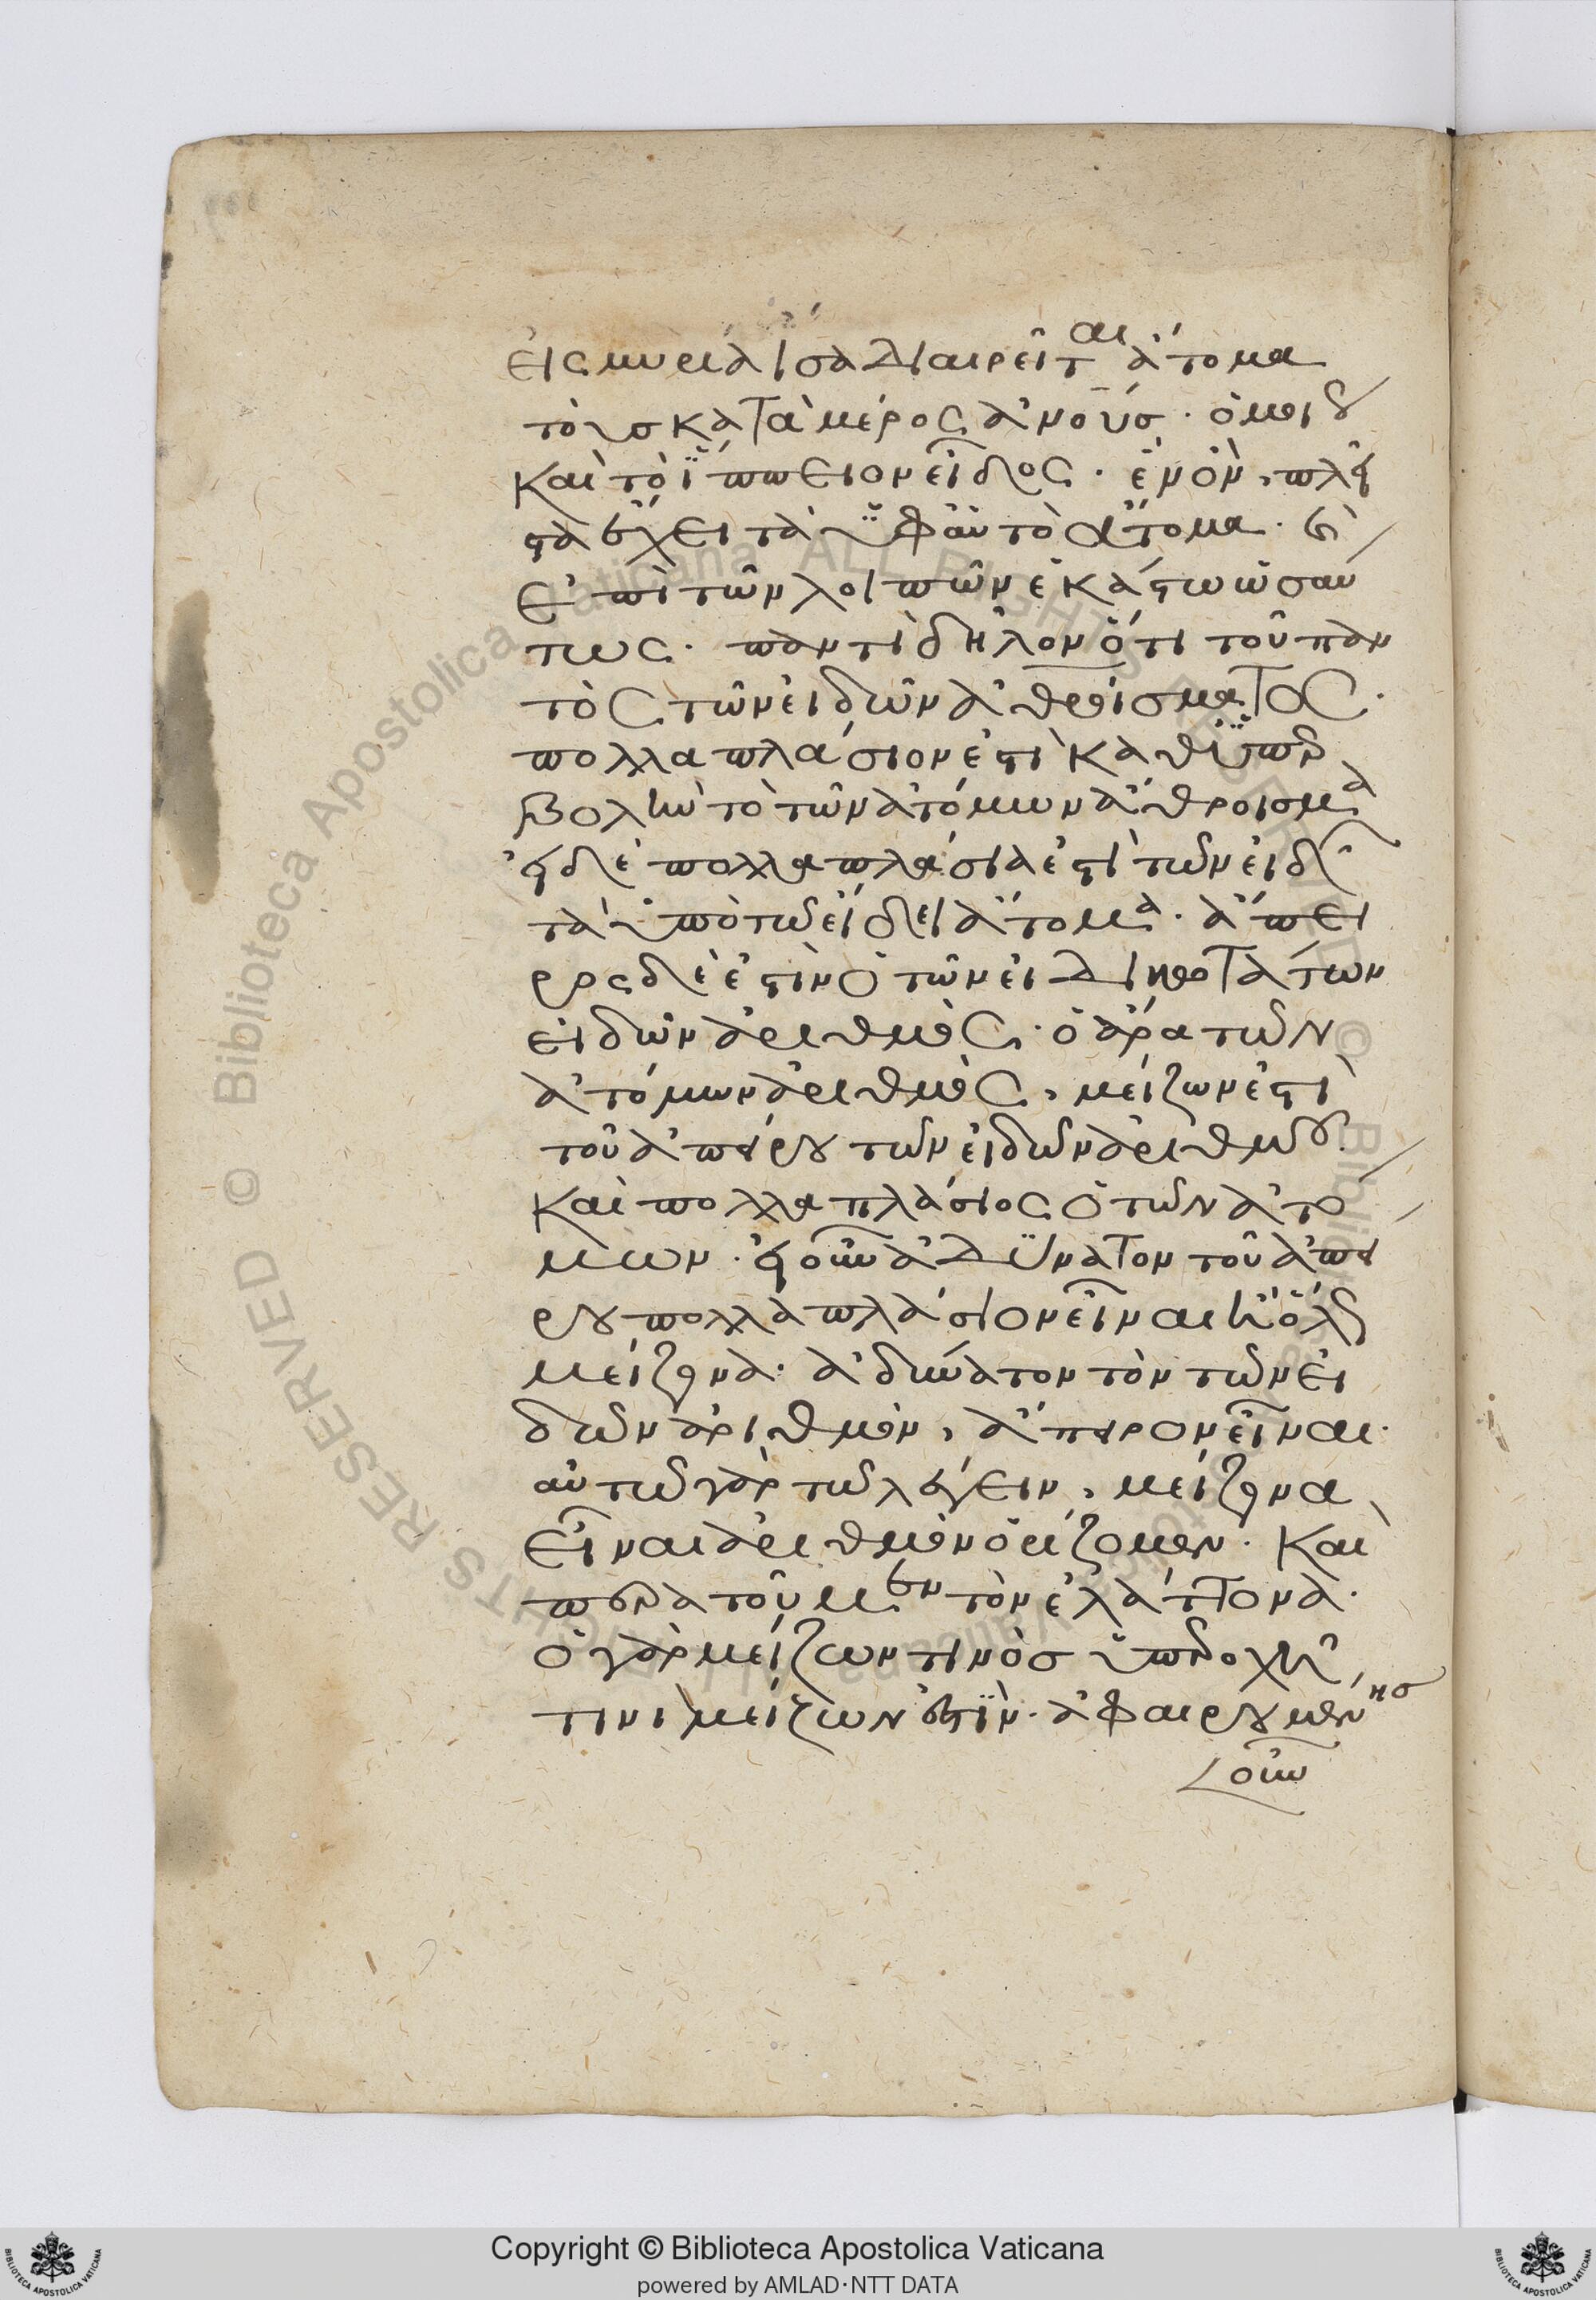 εἰς μυρία ἴσα διαιρεῖται ἄτομα
τοὺς κατα μέρος ἀνο̅υς· ὁμοίως
καὶ τὸ ἵππειον εἶδος· ἓν ὂν, πλεῖ
στα ἔχει τὰ ὑφ' αὑτὸ ἄτομα· καὶ
ἐπὶ τῶν λοιπῶν ἑκάστω ὡσαύ
τως· παντὶ δῆλον ὅτι τοῦ παν
τὸς τῶν εἰδῶν ἀθροίσματος·
πολλαπλάσιον ἐστὶ καθ' ὑπερ
βολὴν τὸ τῶν ἀτόμων ἄθροισμα
εἰ δὲ πολλαπλάσια ἐστὶ τῶν εἰδῶν
τὰ ὑπὸ τῶ εἴδει ἄτομα· ἄπει
ρος δὲ ἐστὶν ὁ τῶν εἰδικοτάτων
εἰδῶν ἀριθμὸς· ὁ ἄρα τῶν
ἀτόμων ἀριθμὸς, μείζων ἐστὶ
τοῦ ἀπείρου τῶν εἰδῶν ἀριθμοῦ·
καὶ πολλαπλάσιος ὁ τῶν ἀτό
μων· εἰ οὖν ἀδύνατον τοῦ ἀπεί
ρου πολλαπλάσιον εἶναι ἢ ὅλως
μείζονα· ἀδύνατον τὸν τῶν εἰ
δῶν ἀριθμὸν, ἄπειρον εἶναι·
αὐτῶ γὰρ τῶ λέγειν, μείζονα
εἶναι ἀριθμὸν ὁρίζομεν· καὶ
περατοῦμεν τὸν ἐλάττονα·
ὁ γὰρ μείζων τινὸς ὑπεροχῆ
τινὶ μείζων ἐστὶν· ἀφαιρουμένης
οὖν
Copyright © Biblioteca Apostolica Vaticana
powered by AMLAD·NTT DATA